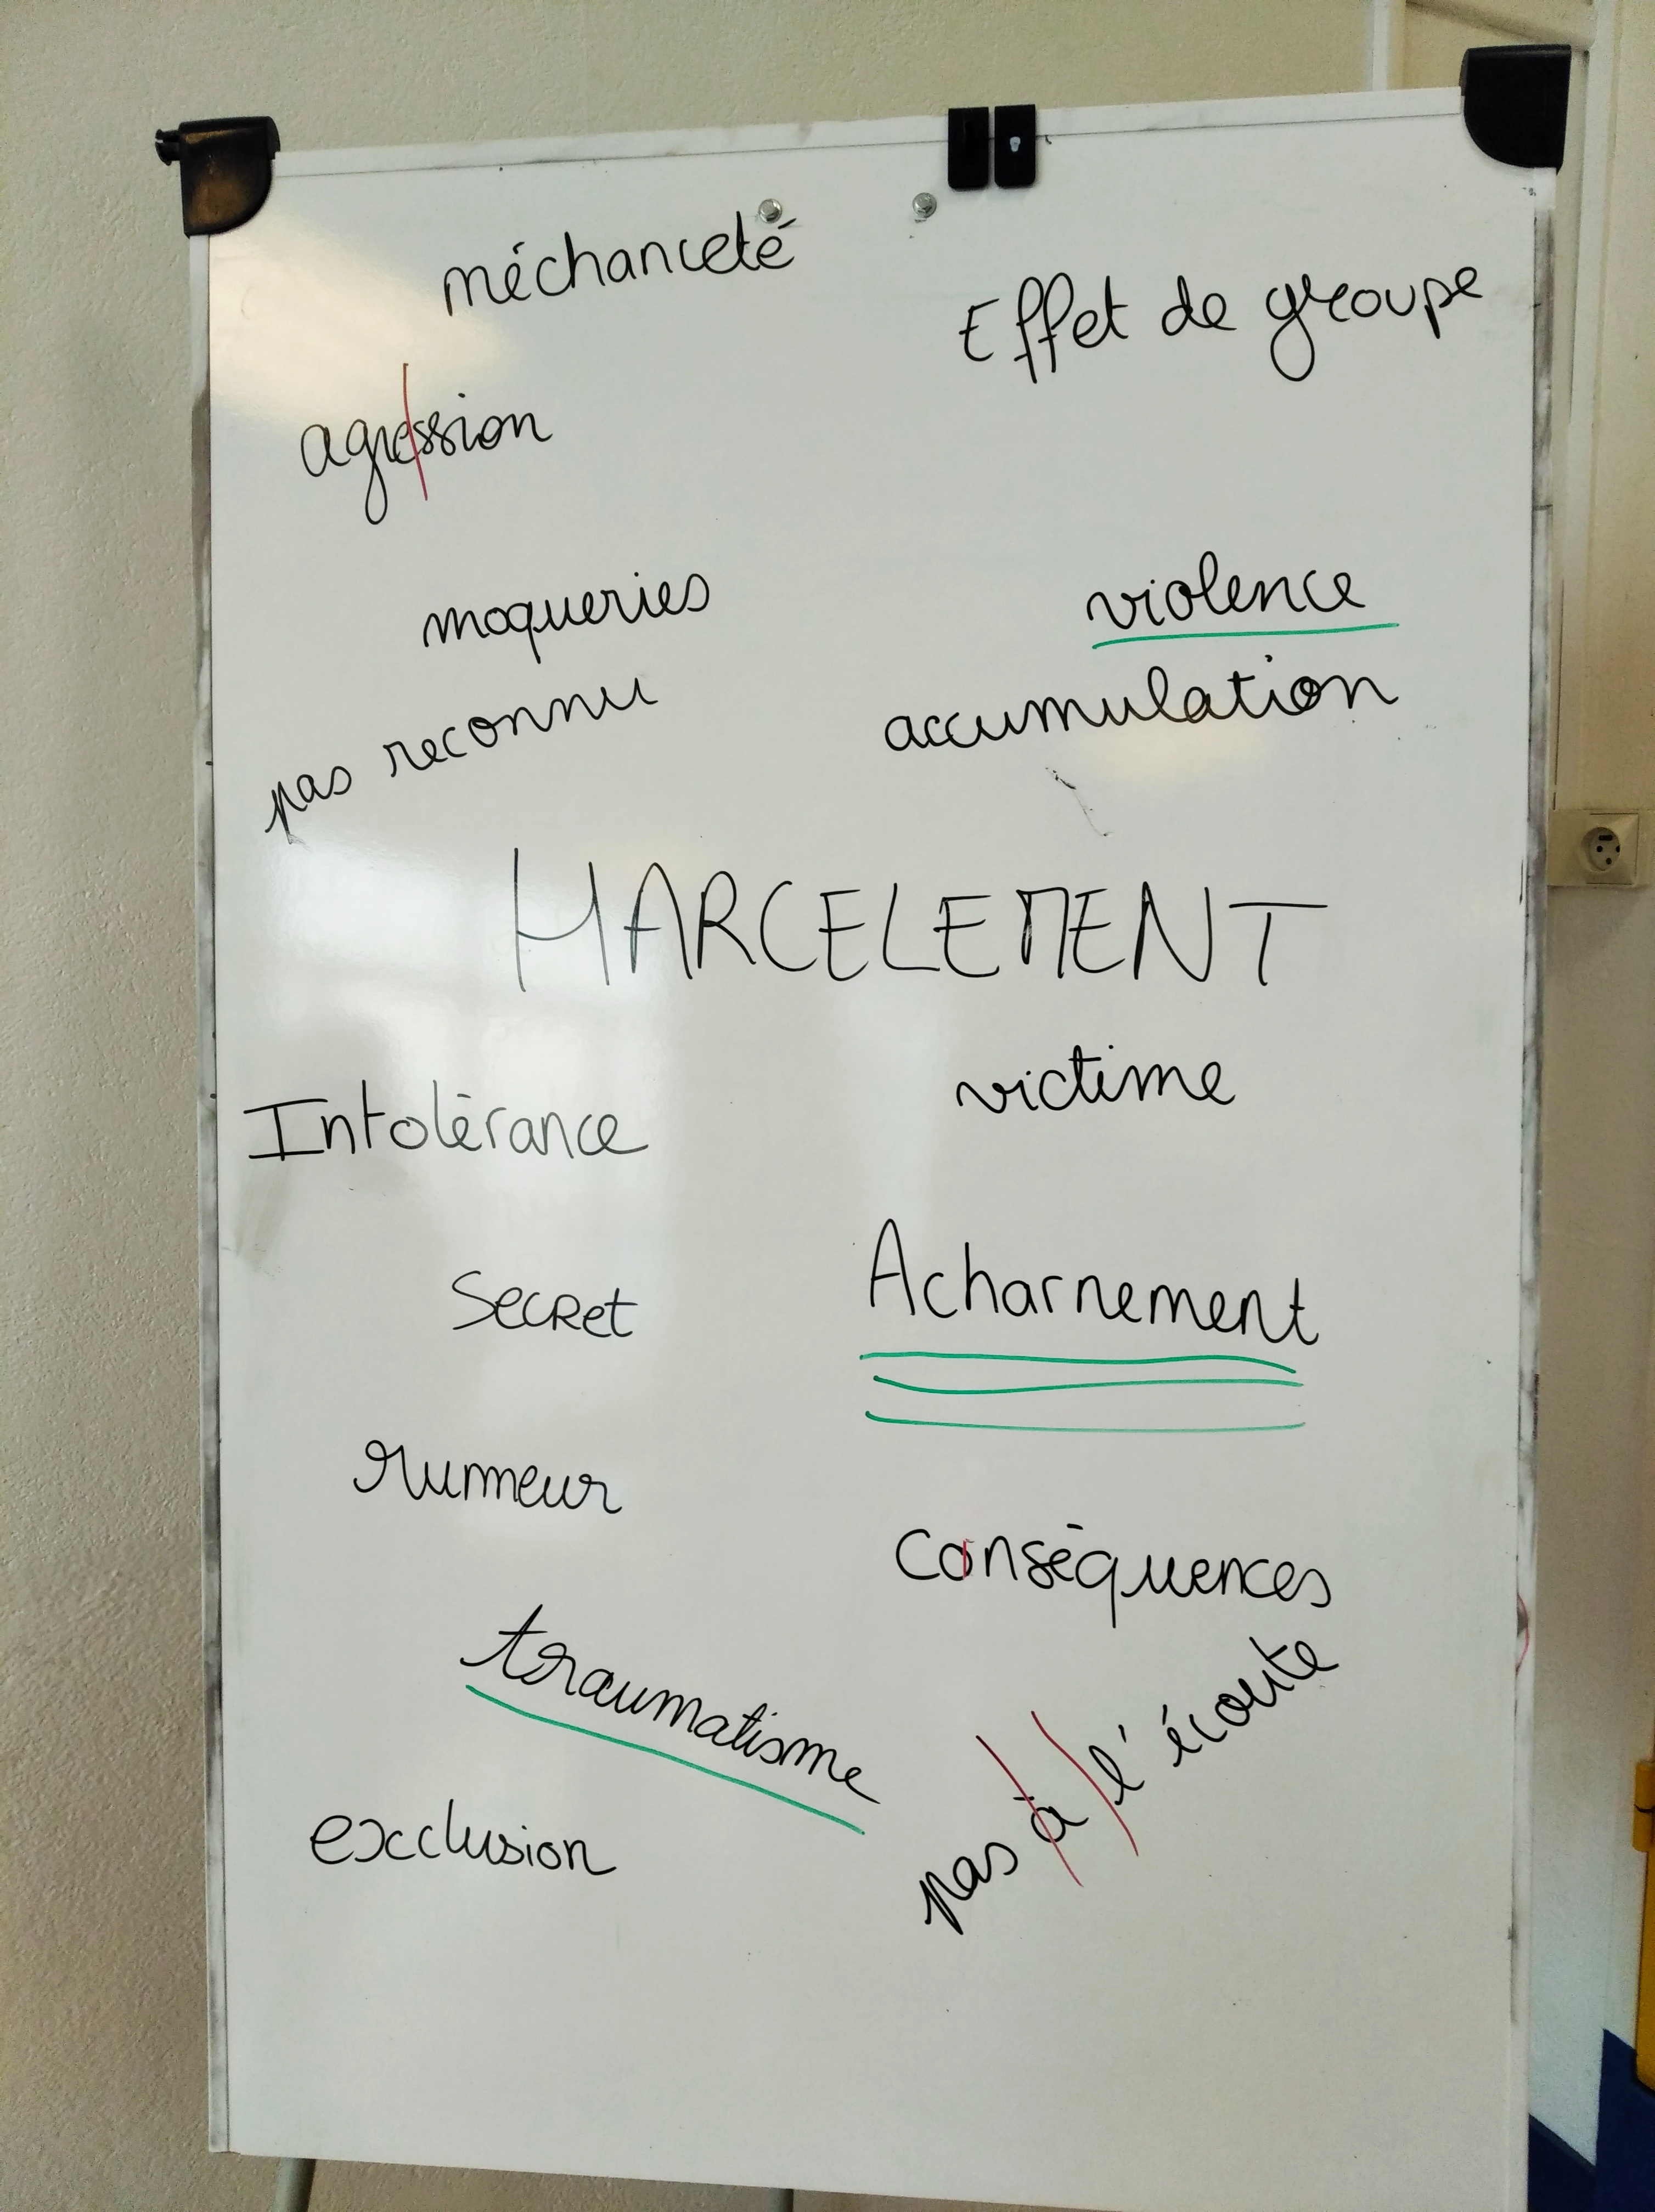 méchanceté
Effet de groupe
agression
moqueries
violence
pas reconnu
accumulation
HARCELEMENT
victime
Intolérance
Acharnement
Secret
rumeur
Conséquences
traumatisme
pas à l'écoute
exclusion